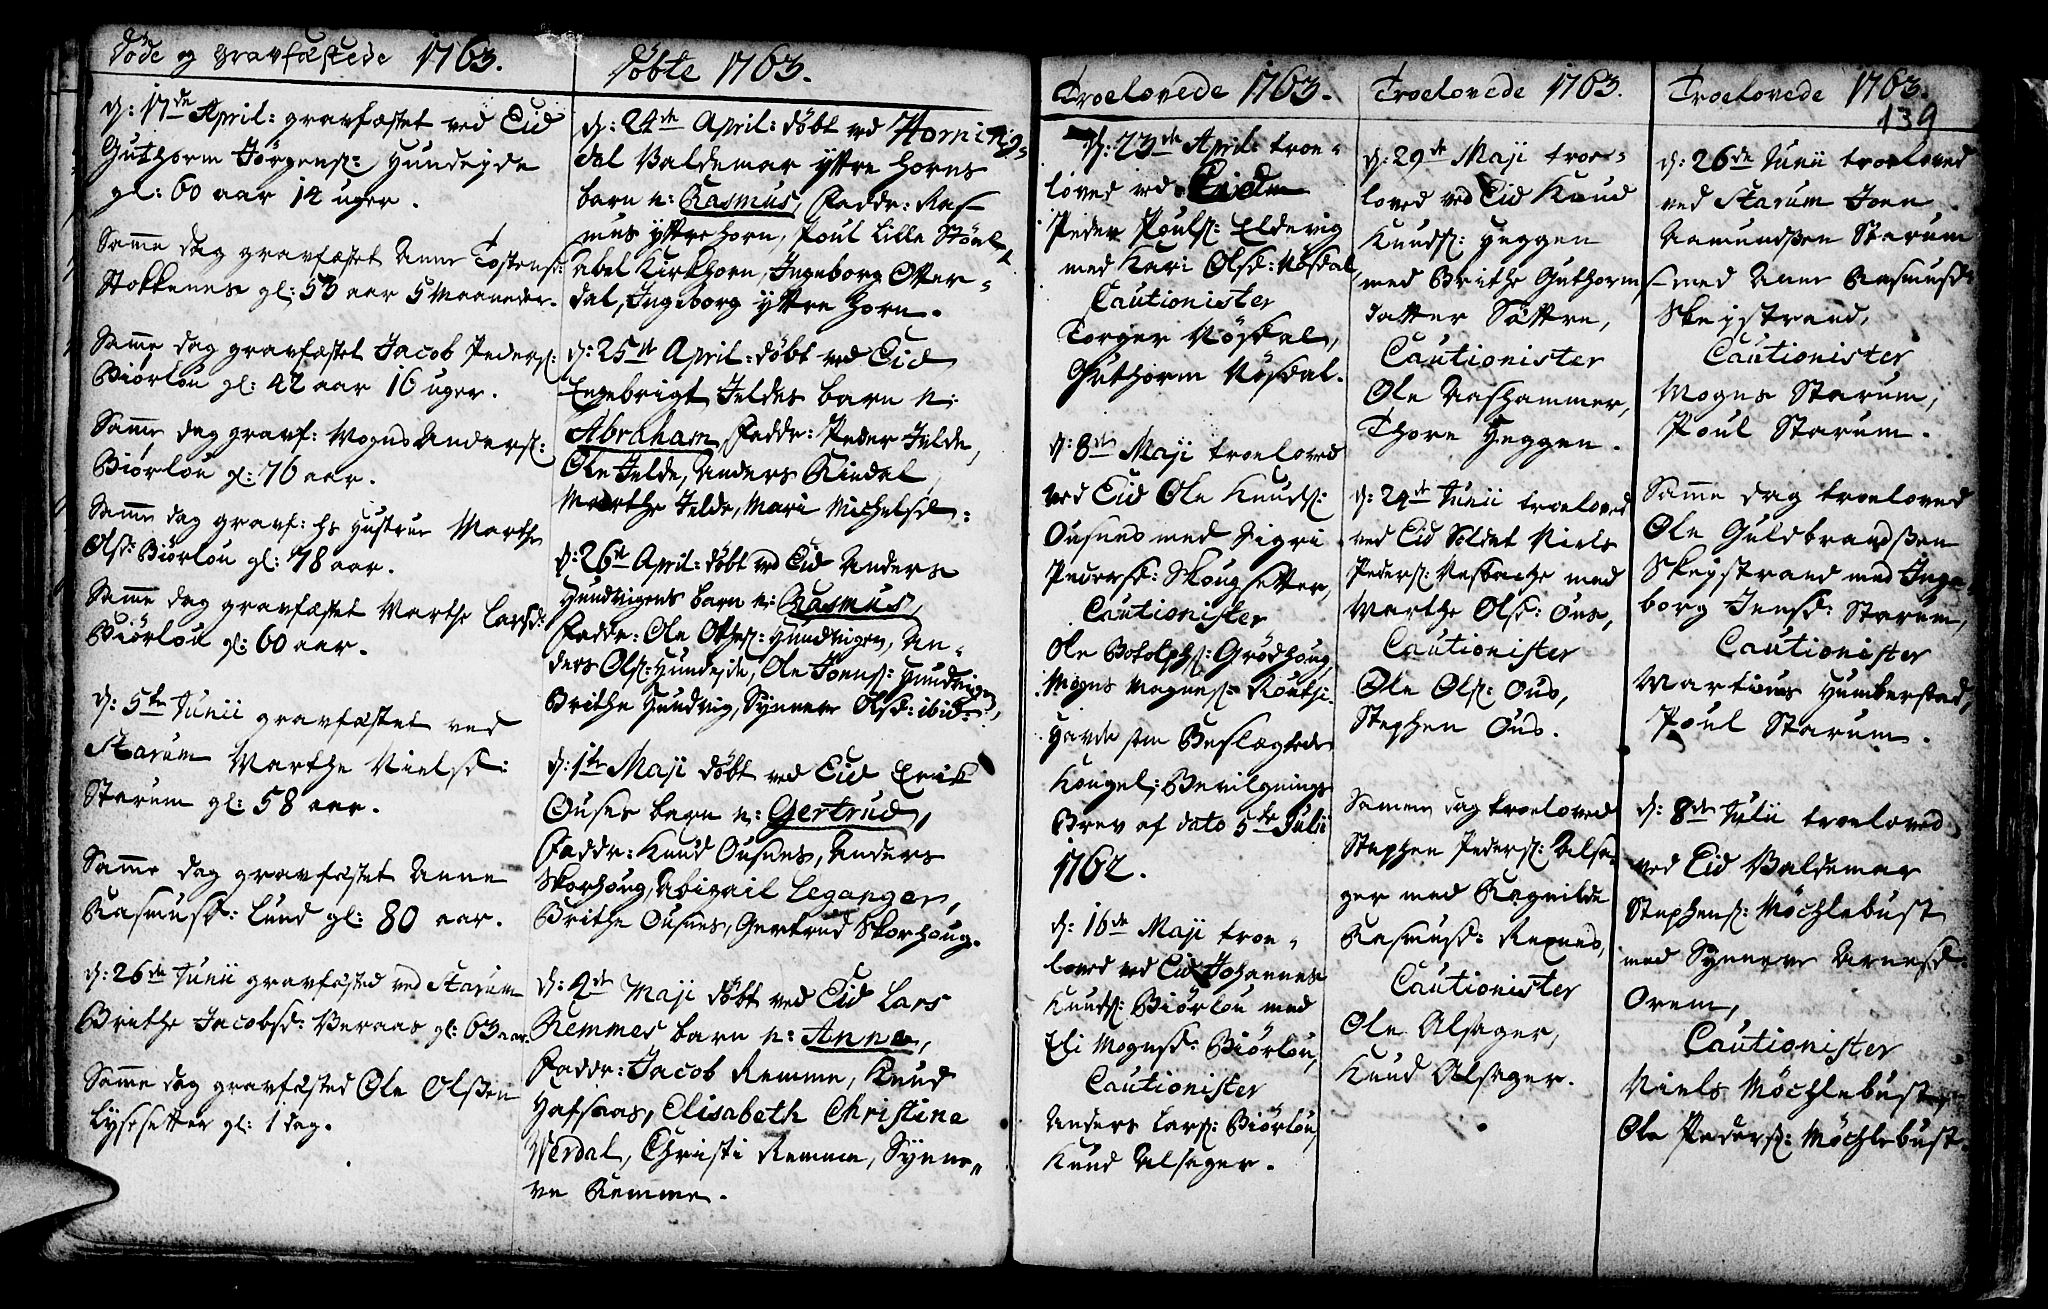 Døde og gravfæstede 1763.
d: 17de April: gravfæstet ved Eid
Guthorm Jörgens: Hundejde
gl: 60 aar 12 uger.
Samme dag gravfæstet Anne Tostensd:
Stokkenes gl: 53 aar 5 Maaneder.
Samme dag gravfæstet Jacob Peders:
Biörlou gl: 42 aar 16 uger.
Samme dag gravf: Mogns Anders:
Biörlou gl: 76 aar.
Samme dag gravf: hs Hustrue Marthe
Olsd: Biörlou gl: 78 aar.
Samme dag gravfæstet Marthe Larsd:
Biörlou gl: 60 aar.
d: 5te Junii gravfæstet ved
Starum Marthe Nielsd:
Starum gl: 58 aar.
Samme dag gravfæstet Anne
Rasmusd: Lund gl: 80 aar.
d: 26de Junii gravfæsted ved Starum
Brithe Jacobsd: Veraas gl: 63 aar.
Samme dag gravfæsted Ole Olssen
Lysesetter gl: 1 dag.
Döbte 1763.
d: 24de April: döbt ved Horning,,
dal Valdemar Yttre Horns
barn n: Rasmus, Faddr: Ras-
mus Yttrehorn, Poul Lille Stöel,
Abel Kirkhorn, Ingeborg Otter-
dal, Ingeborg Yttre Horn.
d: 25de April: döbt ved Eid
Engebrigt Jeldes barn n:
Abraham, Faddr: Peder Jelde,
Ole Jelde, Anders Rindal,
Marthe Jelde, Mari Michelsd:
d: 26de April: döbt ved Eid Anders
Hundvigens barn n: Rasmus,
Faddr: Ole Othes: Hundvigen, An-
ders Ols: Hundejde, Ole Joens: Hundvigen
Brithe Hundvig, Synneve Olsd: ibid:
d: 1te Maji döbt ved Eid Erick
Ouses barn n: Gertrud,
Faddr: Knud Ousnes, Anders
Skorhoug, Abigail Leganger,
Brithe Ousnes, Gertrud Skorhoug.
d: 4de Maji döbt ved Eid Lars
Remmes barn n: Anne,
Faddr: Jacob Remme, Knud
Hafsaas, Elisabeth Christine
Werdal, Christi Remme, Synne,,
ve Remme.
Troelovede 1763.
d: 23de April: troe-
loved ved Eid
Peder Pouls: Eldevig
med Kari Olsd: Nösdal,
Cautionister
Torger Nösdal,
Guthorm Nösdal.
d: 8de Maji troeloved
ved Eid Ole Knuds:
Ousnes med Sigri
Pedersd: Skougsetter,
Cautionister
Ole Botolphs: Grödhoug,
Mogns Mognes:
Havde som Beslægtede
Kongel: Bevilgnings
Brev af dato 5te Julii
1762.
d: 16de Maji troe-
loved ved Eid Johannes
Knuds: Biörlou med
Eli Mognsd: Biörlou,
Cautionister
Anders Lars: Biörlou,
Knud Alsager.
Troelovede 1763.
d: 29de Maji troe-
loved ved Eid Knud
Knuds: Heggen
med Brithe Guthorms
datter Sættre,
Cautionister
Ole Aashammer,
Thore Heggen.
d: 24de Junii troeloved
ved Eid Soldat Niels
Peders: Nesbache med
Marthe Olsd: Ous,
Cautionister
Ole Ols: Ous,
Stephen Ous.
Samme dag troeloved
Stephen Peders: Alsa-
ger med Ragnilde
Rasmusd: Rexnes,
Cautionister
Ole Alsager,
Knud Alsager.
Troelovede 1763.
139
d: 26de Junii troeloved
ved Starum Joen
Aamundssen Starum
med Anne Rasmusd:
Skejstrand,
Cautionister
Mogns Starum,
Poul Starum.
Samme dag troeloved
Ole Guldbrandssen
Skejstrand med Inge
borg Jensd: Starum,
Cautionister
Martinus Humberstad,
Poul Starum.
d: 8de Julii troeloved
ved Eid Valdemar
Stephens: Möchlebust
med Synneve Arnesd:
Orem,
Cautionister
Niels Möchlebust,
Ole Peders: Möchlebust.